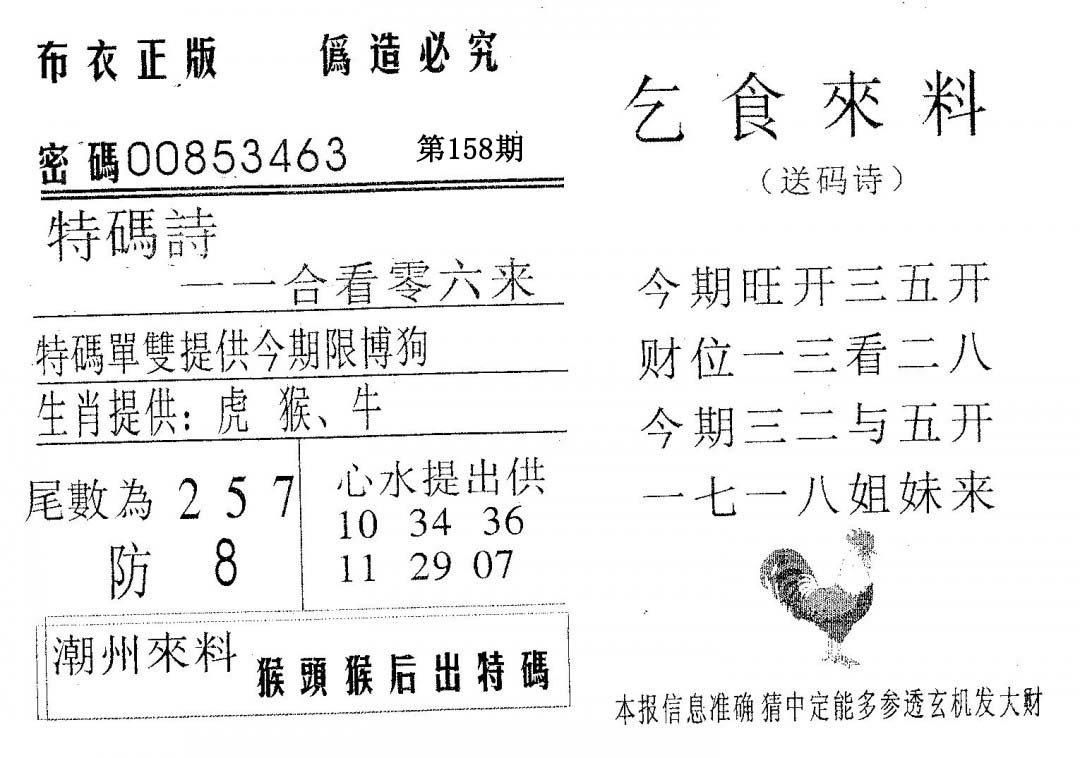 布衣正版 僞造必究
密碼00853463 第158期
特碼詩
一一合看零六来
特碼單雙提供今期限博狗
生肖提供：虎 猴、牛
尾數為 2 5 7
防 8
心水提出供
10 34 36
11 29 07
潮州來料 猴頭猴后出特碼
乞食來料
（送码诗）
今期旺开三五开
财位一三看二八
今期三二与五开
一七一八姐妹来
本报信息准确猜中定能多参透玄机发大财